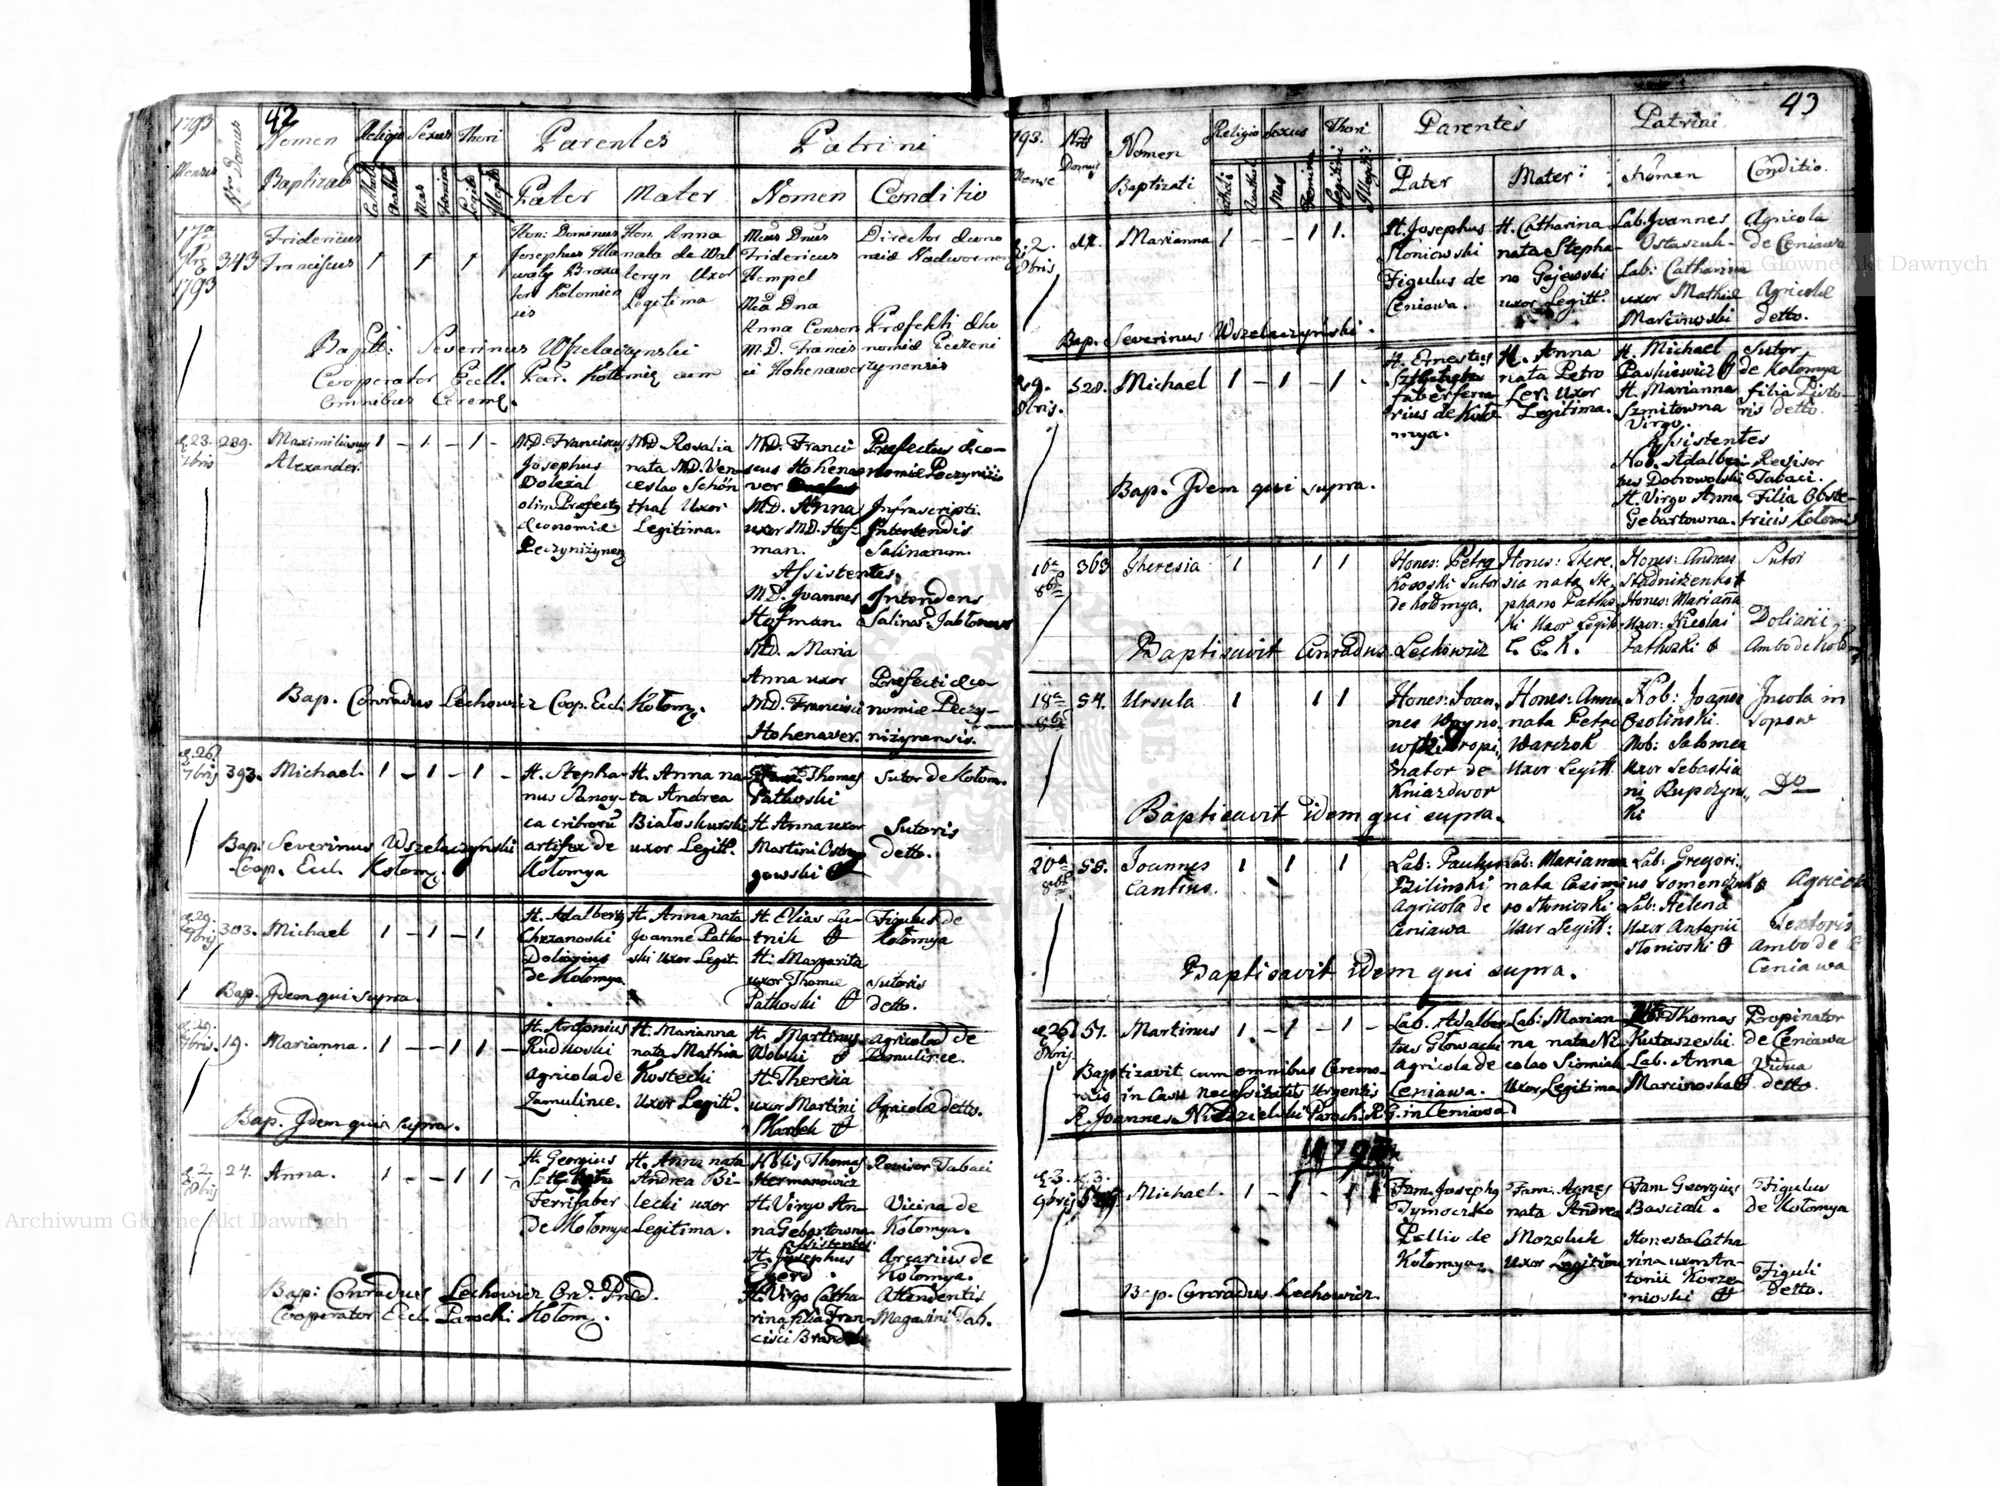 1793
42
Mensis
Nrs Domus
Nomen
Baptizati
Religio
Sexus
Thori
Parentes
Patrini
Pater
Mater
Nomen
Conditio
17a
7bris
1793
343
Fridericus
Franciscus
1 1 1
Hon: Dominus
Josephus
Hon: Anna
nata de Wal
leryn Uxor
Legitima
Mcus Dnus
Fridericus
Hempel
Mca Dna
Anna Consors
M.D. Francis
ci Hohenawer
Director Œcono
miæ Nadworne
Præfecti Œko
nomiæ Peczeni
zynensis
Bapti: Severinus Wszelaczynski
Cooperator Eccll. Par. Kołomię cum
omnibus Cerem.
d. 23.
7bris
289.
Maximilianus
Alexander.
1 – 1 – 1 –
MD. Franciscus
Josephus
Dolezal
olim Præfectus
Œconomiæ
Peczyniżynen
MD Rosalia
nata MD. Ven
ceslao Schön
thal Uxor
Legitima.
MD. Franci
scus Hohena
ver
MD. Anna
uxor MD. Hof-
man.
Assistentes.
MD. Joannes
Hofman.
MD. Maria
Anna uxor
MD. Francisci
Hohenaver.
Præfectus Œco-
nomiæ Peczyniżi
Infrascripti
Intentendis
Salinarum.
Intendens
Salinar: Jabłonow
Præfecti Œco
nomiæ Peczy-
niżynensis.
Bap. Conradus Lechowicz Coop. Eccl. Kołom.
d. 26
7bris
393.
Michael.
1 – 1 – 1 –
H. Stepha-
nus Sanoy-
ca cribroru
artifex de
Kołomya
H. Anna na-
ta Andrea
Białoskurski
uxor Legitt.
Thomas
Patkoski
H. Anna uxor
Martini Ostap
gowski
Sutor de Kołom.
Sutoris
detto.
Bap. Severinus Wszelaczyński
Coop. Eccl. Kołom.
d. 29.
7bris
303.
Michael
1 – 1 – 1
H. Adalbertg
Chrzanoski
Doliarius
de Kołomya
H. Anna nata
Joanne Patko-
ski uxor Legit.
H. Elias Lu-
tnik
H. Margarita
uxor Thomæ
Patkoski
Figulus de
Kołomya
Sutoris
detto.
Bap. Idem qui supra.
d. 29.
7bris.
19.
Marianna.
1 – – 1 1 –
H. Antonius
Rudkoski
Agricola de
Zamulince.
H. Marianna
nata Mathia
Kostecki
Uxor Legitt.
H. Martinus
Wolski
H. Theresia
uxor Martini
Skarbek
Agricola de
Zamulince.
Agricolæ detto.
Bap. Idem qui supra.
d. 2
8bris
24.
Anna.
1 – – 1 1 –
H. Georgius
Ferrifaber
de Kołomya
H. Anna nata
Andrea Bi-
lecki uxor
Legitima.
Nblis Thomas
Hermanowicz
H. Virgo An-
na Gebartowna
Assistentes
H. Josephus
H. Virgo Catha-
rina filia Fran-
cisci
Revisor Tabaci
Vicina de
Kołomya.
Arcarius de
Kołomya.
Attendentis
Magasini Tab.
Bap: Conradus Lechowicz Ord. Præd.
Cooperator Eccl. Parochi. Kołom.
43
793.
Mense
Nrs
Domus
Nomen
Baptizati
Religio
Sexus
Thori
Parentes
Patrini
Pater
Mater
Nomen
Conditio.
d. 2.
8bris
Marianna
1 – – 1 1.
H. Josephus
Słoniowski
Figulus de
Ceniawa.
H. Catharina
nata Stepha-
no Gajewski
uxor Legitt.
Lab. Joannes
Ostaszuk-
Lab: Catharina
uxor Mathiæ
Marcinowski
Agricola
de Ceniawa
Agricolæ
detto.
Bap. Severinus Wszelaczyński.
d. 9.
8bris.
528.
Michael
1 – 1 – 1
H. Ernestus
faber ferra
rius de Koło
mya.
H. Anna
nata Petro
Ler. Uxor
Legitima.
H. Michael
Paskiewicz
H. Marianna
Szmitowna
Virgo.
Assistentes
Nob. Adalber-
tus Dobrowolski
H. Virgo Anna
Gebartowna.
Sutor
de Kołomya
filia Pisto-
ris detto.
Revisor
Tabaci.
Filia Obste-
tricis Kołomi
Bap. Idem qui supra.
16a
8bris
363
Theresia
1 1 1
Hones: Petrg
Kososki Sutor
de Kołomya.
Hones: There-
sia nata Ste-
phano Patkos
ki Uxor Legit
Hones: Andreas
Stadniczenko
Hones: Marianna
Uxor: Nicolai
Patkozki
Sutor
Doliarii
Ambo de Kołom
Baptisavit Conradus Lechowicz C. E. K.
18a
8bris
54.
Ursula
1 1 1
Hones: Joan
nes Woyno
wski Propi
nator de
Kniazdwor
Hones: Anna
nata Petro
Warczok
Uxor Legitt.
Nob: Joannes
Ozolinski.
Nob: Salomea
Uxor Sebastia
ni Rupczyns
ki
Incola in
Sopow
Do
Baptisavit idem qui supra.
20a
8bris
55.
Joannes
Cantius.
1 1 1
Lab: Paulus
Agricola de
Ceniawa
Lab: Marianna
nata Casimi
ro Słonioski
Uxor Legitt:
Lab: Gregori
us Somenczuk
Lab: Helena
Uxor Antonii
Słonioski
Agricola
Textoris
Ambo de
Ceniawa
Baptisavit idem qui supra.
d. 26
8bris
51.
Martinus
1 – 1 – 1 –
Lab. Adalber
tus Głowacki
Agricola de
Ceniawa.
Lab: Marian-
na nata Ni-
colao Siomiak
Uxor Legitima
Thomas
Kutaszeski
Lab. Anna
Marcinoska
Propinator
de Ceniawa
Vidua
detto.
Baptizavit cum omnibus Ceremo-
niis in Casu necessitatis Urgentis
R. Joannes Nidzielski Paroch. R. G. in Ceniawa
1793
d. 3.
9bris
Michael.
1 – 1 – 1
Fam. Josephg
Tymoczko
Pellio de
Kołomya.
Fam: Agnes
nata Andrea
Mozoluk
Uxor Legitima
Fam Georgius
Basciak.
Honesta Catha
rina uxor An-
tonii Korze
nioski
Figulus
de Kołomya
Figuli
Detto.
Bap. Conradus Lechowicz.
Archiwum Główne Akt Dawnych
Archiwum Główne Akt Dawnych